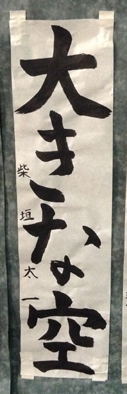 大きな空
柴垣太一